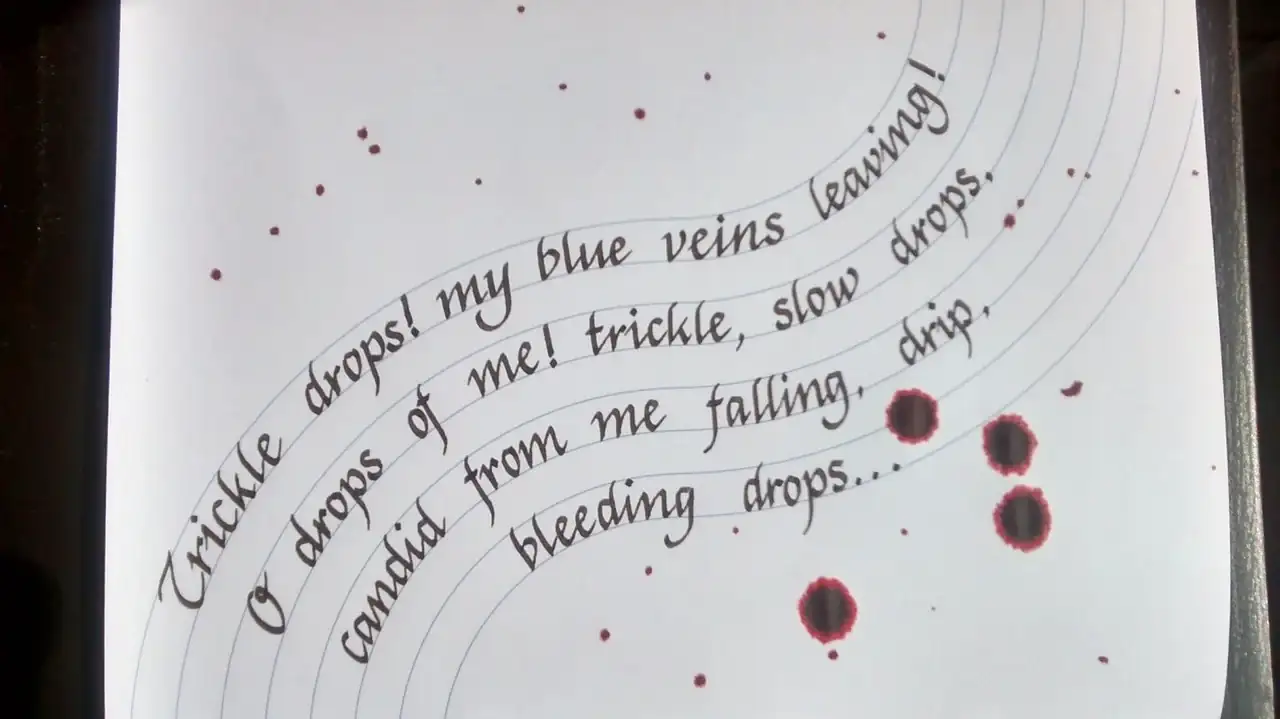 Trickle drops! my blue veins leaving!
O drops of me! trickle, slow drops,
candid from me falling, drip,
bleeding drops...